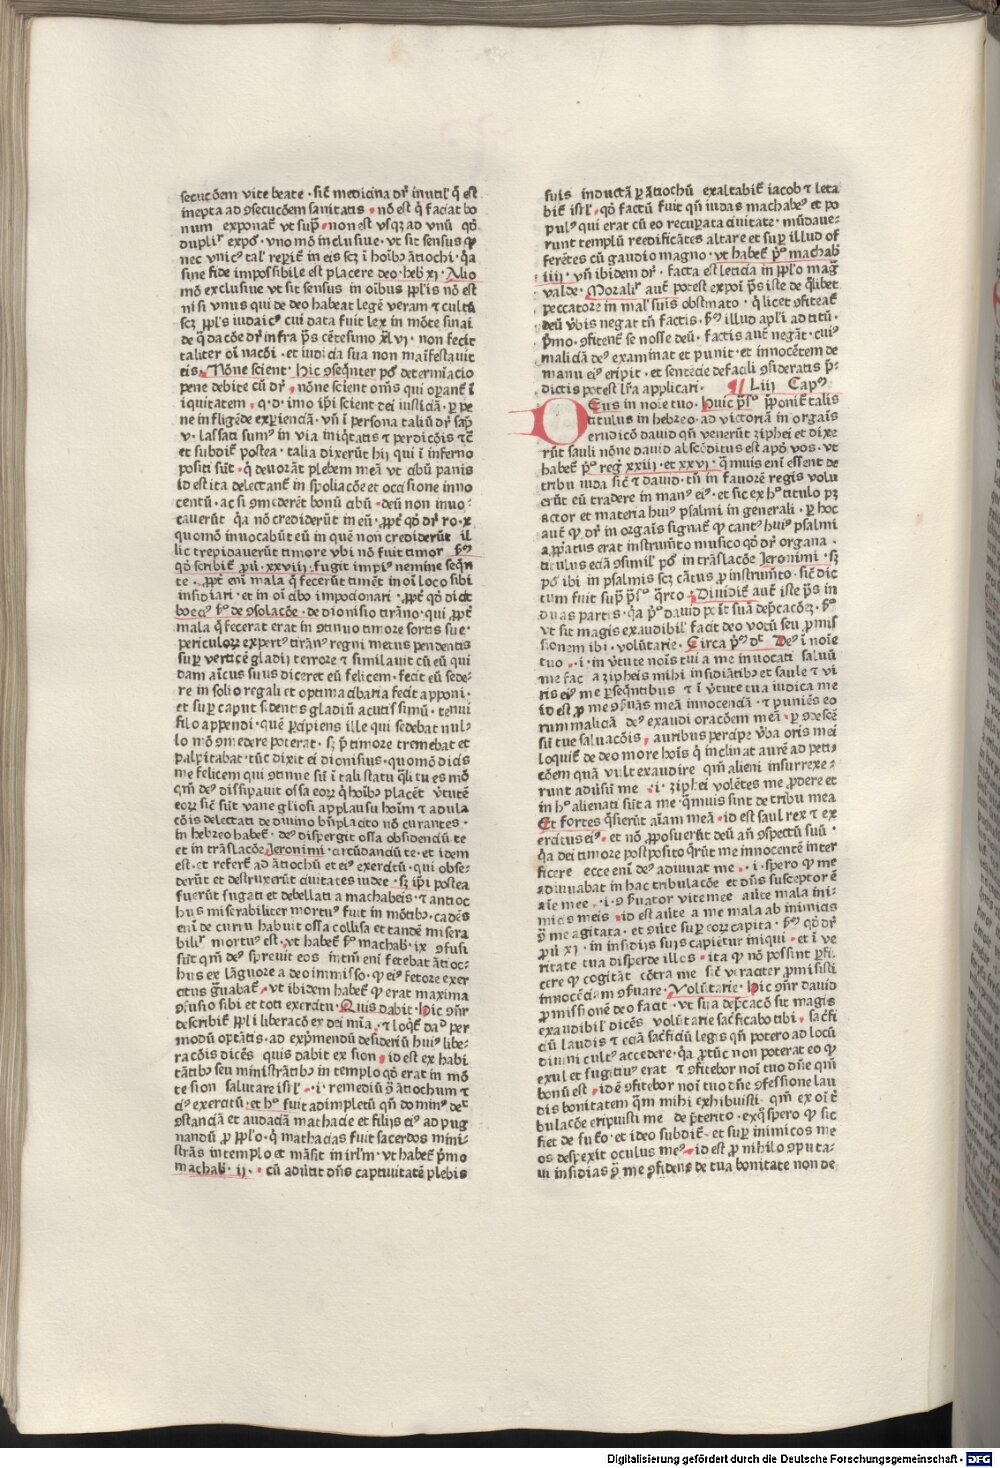 secucōem vite beate · sic̄ medicina dr̄ inutilʼ q̄ est
inepta ad ꝯsecucōem sanitatis · nō est q̄ faciat bo
num exponat̄ vt supͣ · non est vsqꝫ ad vnū qd̓
duplir̓ expōʼ · vno mō inclusiue · vt sit sensus ꝙ
nec vnicꝰ talʼ reperit̄ in eis scꝫ i hoībꝫ ātiochi · q̓a
sine fide impossibile est placere deo · heb̓ xi · Alio
mō exclusiue vt sit sensus in oībus pplʼis nō est
nisi vnus qui de deo habeat legē veram ⁊ cultū
scꝫ pplʼs iudaicꝰ cui data fuit lex in mōte sinai
de q̄ dacōe dr̄ infra pͣs cētesimo xlvj · non fecit
taliter oī nacōi · et iudicia sua non maīfestauit
eis · Nōne scient · hic ꝯseqn̄ter pōʼ determīacio
pene debite cū dr̄ · nōne scient om̄s qui opant̄ ī
iniquitatem · q · d · imo ip̄i scient dei iusticiā · p pe
ne in fligēde experienciā · vn̄ ī persona taliū dr̄ sap̄
v · lassati sumꝰ in via iniq̓tatis ⁊ perdicōis ⁊c̄
et subdit̄ postea · talia dixerūt hij qui ī inferno
positi sūt · q̓ deuorāt plebem meā vt cibū panis
id est ita delectant̄ in spoliacōe et occisione inno
centū · ac si ꝯmederēt bonū cibū · deū non inuo-
cauerūt q̓a nō crediderūt in eū · ppt̄ qd̓ dr̄ ro · x
quomō inuocabūt eū in quē non crediderūt il
lic trepidauerūt timore vbi nō fuit timor pͦm
qd̓ scribit̄ pū · xxviij · fugit impiꝰ nemine seqn̄
te · ppt̄ enī mala q̄ fecerūt timēt in oī loco sibi
insidiari · et in oī cibo impocionari · ppt̄ qd̓ dicit
boeciꝰ pͦ de ꝯsolacōe · de dionisio tirāno · qui ppt̄
mala q̄ fecerat erat in ꝯtinuo timore sortis sue ·
periculorꝫ expertꝰ tirānꝰ regni metus pendentis
supͬ verticē gladij terrore ⁊ similauit cū eū qui
dam amicus suus diceret eū felicem · fecit eū sede-
re in solio regali et optima cibaria fecit apponi ·
et supͬ caput sedentis gladiū acutissimū · tenui
filo appendi · quē pͬcipiens ille qui sedebat nul-
lo mō ꝯmedere poterat · sꝫ p̄ timore tremebat et
palpitabat · tūc dixit ei dionisius · quomō dicis
me felicem qui ꝯtinue sū ī tali statu q̄li tu es mō
qm̄ deꝰ dissipauit ossa eorꝫ q̓ hoībꝫ placēt v̓tutē
eorꝫ sic̄ sūt vane gl̓iosi applausu hoīm ⁊ adula
cōis delectati de diuino bn̄placito nō curantes ·
in hebreo habet̄ · deꝰ dispergit ossa obsidenciū te
et in trāslacōe Jeronimi · circūdanciū te · et idem
est · et refert̄ ad ātiochū et eiꝰ exercitū · qui obse-
derūt et destruxerūt ciuitates iudee · sꝫ ip̄i postea
fuerūt fugati et debellati a machabeis · ⁊ antioc
hus miserabiliter mortuꝰ fuit in mōtibꝫ · cadēs
enī de curru habuit ossa collisa et tandē misera
bilir̓ mortuꝰ est · vt habet̄ pͦ machab̓ · ix ꝯfusi
sūt qm̄ deꝰ spreuit eos intm̄ enī fetebat ātioc-
hus ex lāguore a deo immisso · ꝙ eiꝰ fetore exer
citus g̓uabat̄ · vt ibidem habet̄ ꝙ erat maxima
ꝯfusio sibi et toti exercitu · Quis dabit · hic ꝯn̄r
describit̄ pplʼi liberacō ex dei mīa · ⁊ loq̓t̄ dauid per
modū optātis · ad exp̄mendū desideriū huiꝰ libe-
racōis dicēs quis dabit ex sion · id est ex habi
tātibꝫ seu ministrātibꝫ in templo qd̓ erat in mō
te sion salutare isrlʼ · i · remediū ꝯ̄ ātiochum ⁊
eiꝰ exercitū · et hoc fuit adimpletū qn̄ dominꝰ det̓
ꝯstanciā et audaciā mathacie et filijs eiꝰ ad pug
nandū p pplʼo · q̓ mathacias fuit sacerdos mini-
strās in templo et māsit in irlʼm · vt habet̄ pͦmo
machab̓ · ij · · cū aduūt dn̄s captiuitatē plebis
suis inductā p ātiochū exaltabit̄ iacob ⁊ leta
bit̄ isrlʼ · qd̓ factū fuit qn̄ iudas machabeꝰ et po
pulꝰ qui erat cū eo recupata ciuitate · mūdaue-
runt templū reedificātes altare et supͬ illud of
ferētes cū gaudio magno · vt habet̄ pͦ machab̓
iiij · vn̄ ibidem dr̄ · facta est leticia in pplʼo mag̓
valde · Moralir̓ aut̄ potest expoī pͣs iste de q̄libet
peccatore in malʼ suis obstinato · q̓ licet ꝯfiteat̄
deū v̓bis negat tn̄ factis · pͦm illud aplʼi ad titū ·
pͦmo · ꝯfitent̄ se nosse deū · factis aut̄ negāt · cuiꝰ
maliciā deꝰ examinat et punit · et innocētem de
manu eiꝰ eripit · et sentēcie de facili ꝯsideratis p̄-
dictis potest lr̄a applicari · ¶ Liij Capᵐ
DEus in noīe tuo · huic pͣs̄o p̄ponit̄ talis
titulus in hebreo · ad victoriā in orgaīs
erudicō dauid qn̄ venerūt ziphei et dixe
rūt sauli nōne dauid abscōditus est apd̓ vos · vt
habet̄ pͦ reg̓ xxiij · et xxvj · q̄muis enī essent de
tribu iuda sic̄ ⁊ dauid · tn̄ in fauorē regis volu
erūt eū tradere in manꝰ eiꝰ · et sic ex hͦ titulo pꝫ
actor et materia huiꝰ psalmi in generali · p hoc
aut̄ ꝙ dr̄ in orgaīs signat̄ ꝙ cantꝰ huiꝰ psalmi
appatus erat instrumēto musico qd̓ dr̄ organa ·
titulus eciā ꝯsimilʼ pōʼ in trāslacōe Jeronimi · sꝫ
pōʼ ibi in psalmis scꝫ cātus p instrumēto · sic̄ dic
tum fuit supͣ pͣs̄o q̄rto · Diuidit̄ aut̄ iste pͣs in
duas partes · q̓a pͦ dauid petit suā dep̄cacōeꝫ · pͦ
vt sit magis exaudibilʼ facit deo votū seu pmis
sionem ibi · volūtarie · Circa pͫ dꝰ Deꝰ ī noīe
tuo · i · in v̓tute noīs tui a me inuocati saluū
me fac a zipheis mihi insidiātibꝫ et saule ⁊ vi
ris eiꝰ me pseqn̄tibus ⁊ ī v̓tute tua iudica me
id est p me ꝯseruās meā innocenciā · ⁊ puniēs eo
rum maliciā deꝰ exaudi oracōem meā · p ꝯdescē
sū tue saluacōis · auribus percipe v̓ba oris mei
loquit̄ de deo more hoīs q̓ inclinat aurē ad peti
cōem quā vult exaudire qm̄ alieni insurrexe-
runt aduersū me · i · ziphei volētes me pdere et
in hͦ alienati sūt a me · q̄muis sint de tribu mea
Et fortes q̄sierūt aīam meā · id est saul rex ⁊ ex
ercitus eiꝰ · et nō pposuerūt deū an̄ ꝯspectū suū ·
q̓a dei timore postposito q̄rūt me innocentē inter
ficere ecce enī deꝰ adiuuat me · i · spero ꝙ me
adiuuabat in hac tribulacōe et dn̄s susceptor ē
aīe mee · i · ꝯseruator vite mee auerte mala ini-
micis meis · id est auerte a me mala ab inimicis
ꝯ̄ me agitata · et ꝯuerte supͬ eorꝫ capita · pͦm qd̓ dr̄
pū xi · in insidijs suis capietur iniqui · et ī ve
ritate tua disperde illos · ita ꝙ nō possint pfi-
cere ꝙ cogitāt cōtra me sic̄ veraciter pmisisti
innocēciam ꝯseruare · Volūtarie · hic ꝯn̄r dauid
pmissionē deo facit · vt sua dep̄cacō sit magis
exaudibilʼ dicēs volūtarie sac̓ficabo tibi · sac̓fi
ciū laudis ⁊ eciā sac̓ficiū legis qn̄ potero ad locū
diuini cultꝰ accedere · q̓a ptūc non poterat eo ꝙ
exul et fugitiuꝰ erat ⁊ ꝯfitebor noī tuo dn̄e qm̄
bonū est · id ē ꝯfitebor noī tuo dn̄e ꝯfessione lau
dis bonitatem qm̄ mihi exhibuisti · qm̄ ex oī t̄
bulacōe eripuisti me de p̄terito · ex q̄ spero ꝙ sic
fiet de futo · et ideo subdit̄ · et supͬ inimicos me
os despexit oculus meꝰ · id est p nihilo ꝯputa-
ui insidias ꝯ̄ me ꝯfidens de tua bonitate non de
Digitalisierung gefördert durch die Deutsche Forschungsgemeinschaft · DFG